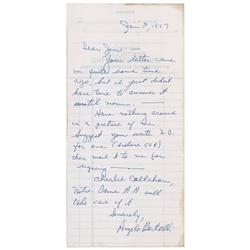 Jan 8, 1957
Dear Jim: -
Your letter came
in quite some time
ago, but I just didnt
have time to answer it
until now. -
Have nothing around
in a picture of me.
Suggest you write N.D.
for one (enclose 50¢)
then mail it to me for
signing
Charlie Callahan,
Notre Dame A.A. will
take care of it
Sincerely,
Angelo Bertelli